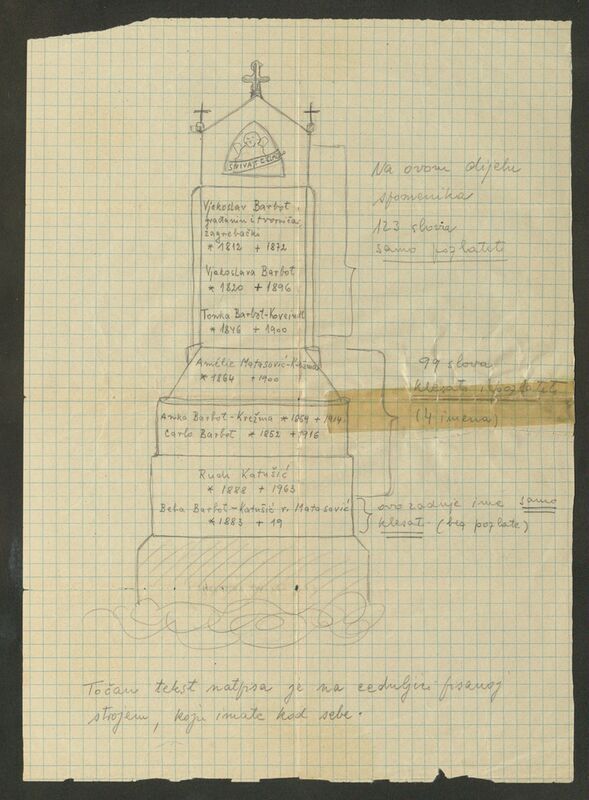 Vjekoslav Barbot
građanin i tvorničar
zagrebački
* 1812 + 1872
Vjekoslava Barbot
* 1820 + 1896
Tonka Barbot-
* 1846 + 1900
Na ovom dijelu
spomenika
123 slova
samo pozlatiti
Amélie Matasović-Krežma
* 1864 + 1900
Anka Barbot-Krežma * 1859 + 1914
Carlo Barbot * 1852 + 1916
Rudi Katušić
* 1888 + 1963
99 slova
klesati i pozlatiti
(4 imena)
Beba Barbot-Katušić r. Matasović
* 1883 + 19
ovo zadnje ime samo
klesati (bez pozlate)
Točan tekst natpisa je na ceduljici pisanoj
strojem, koju imate kod sebe.